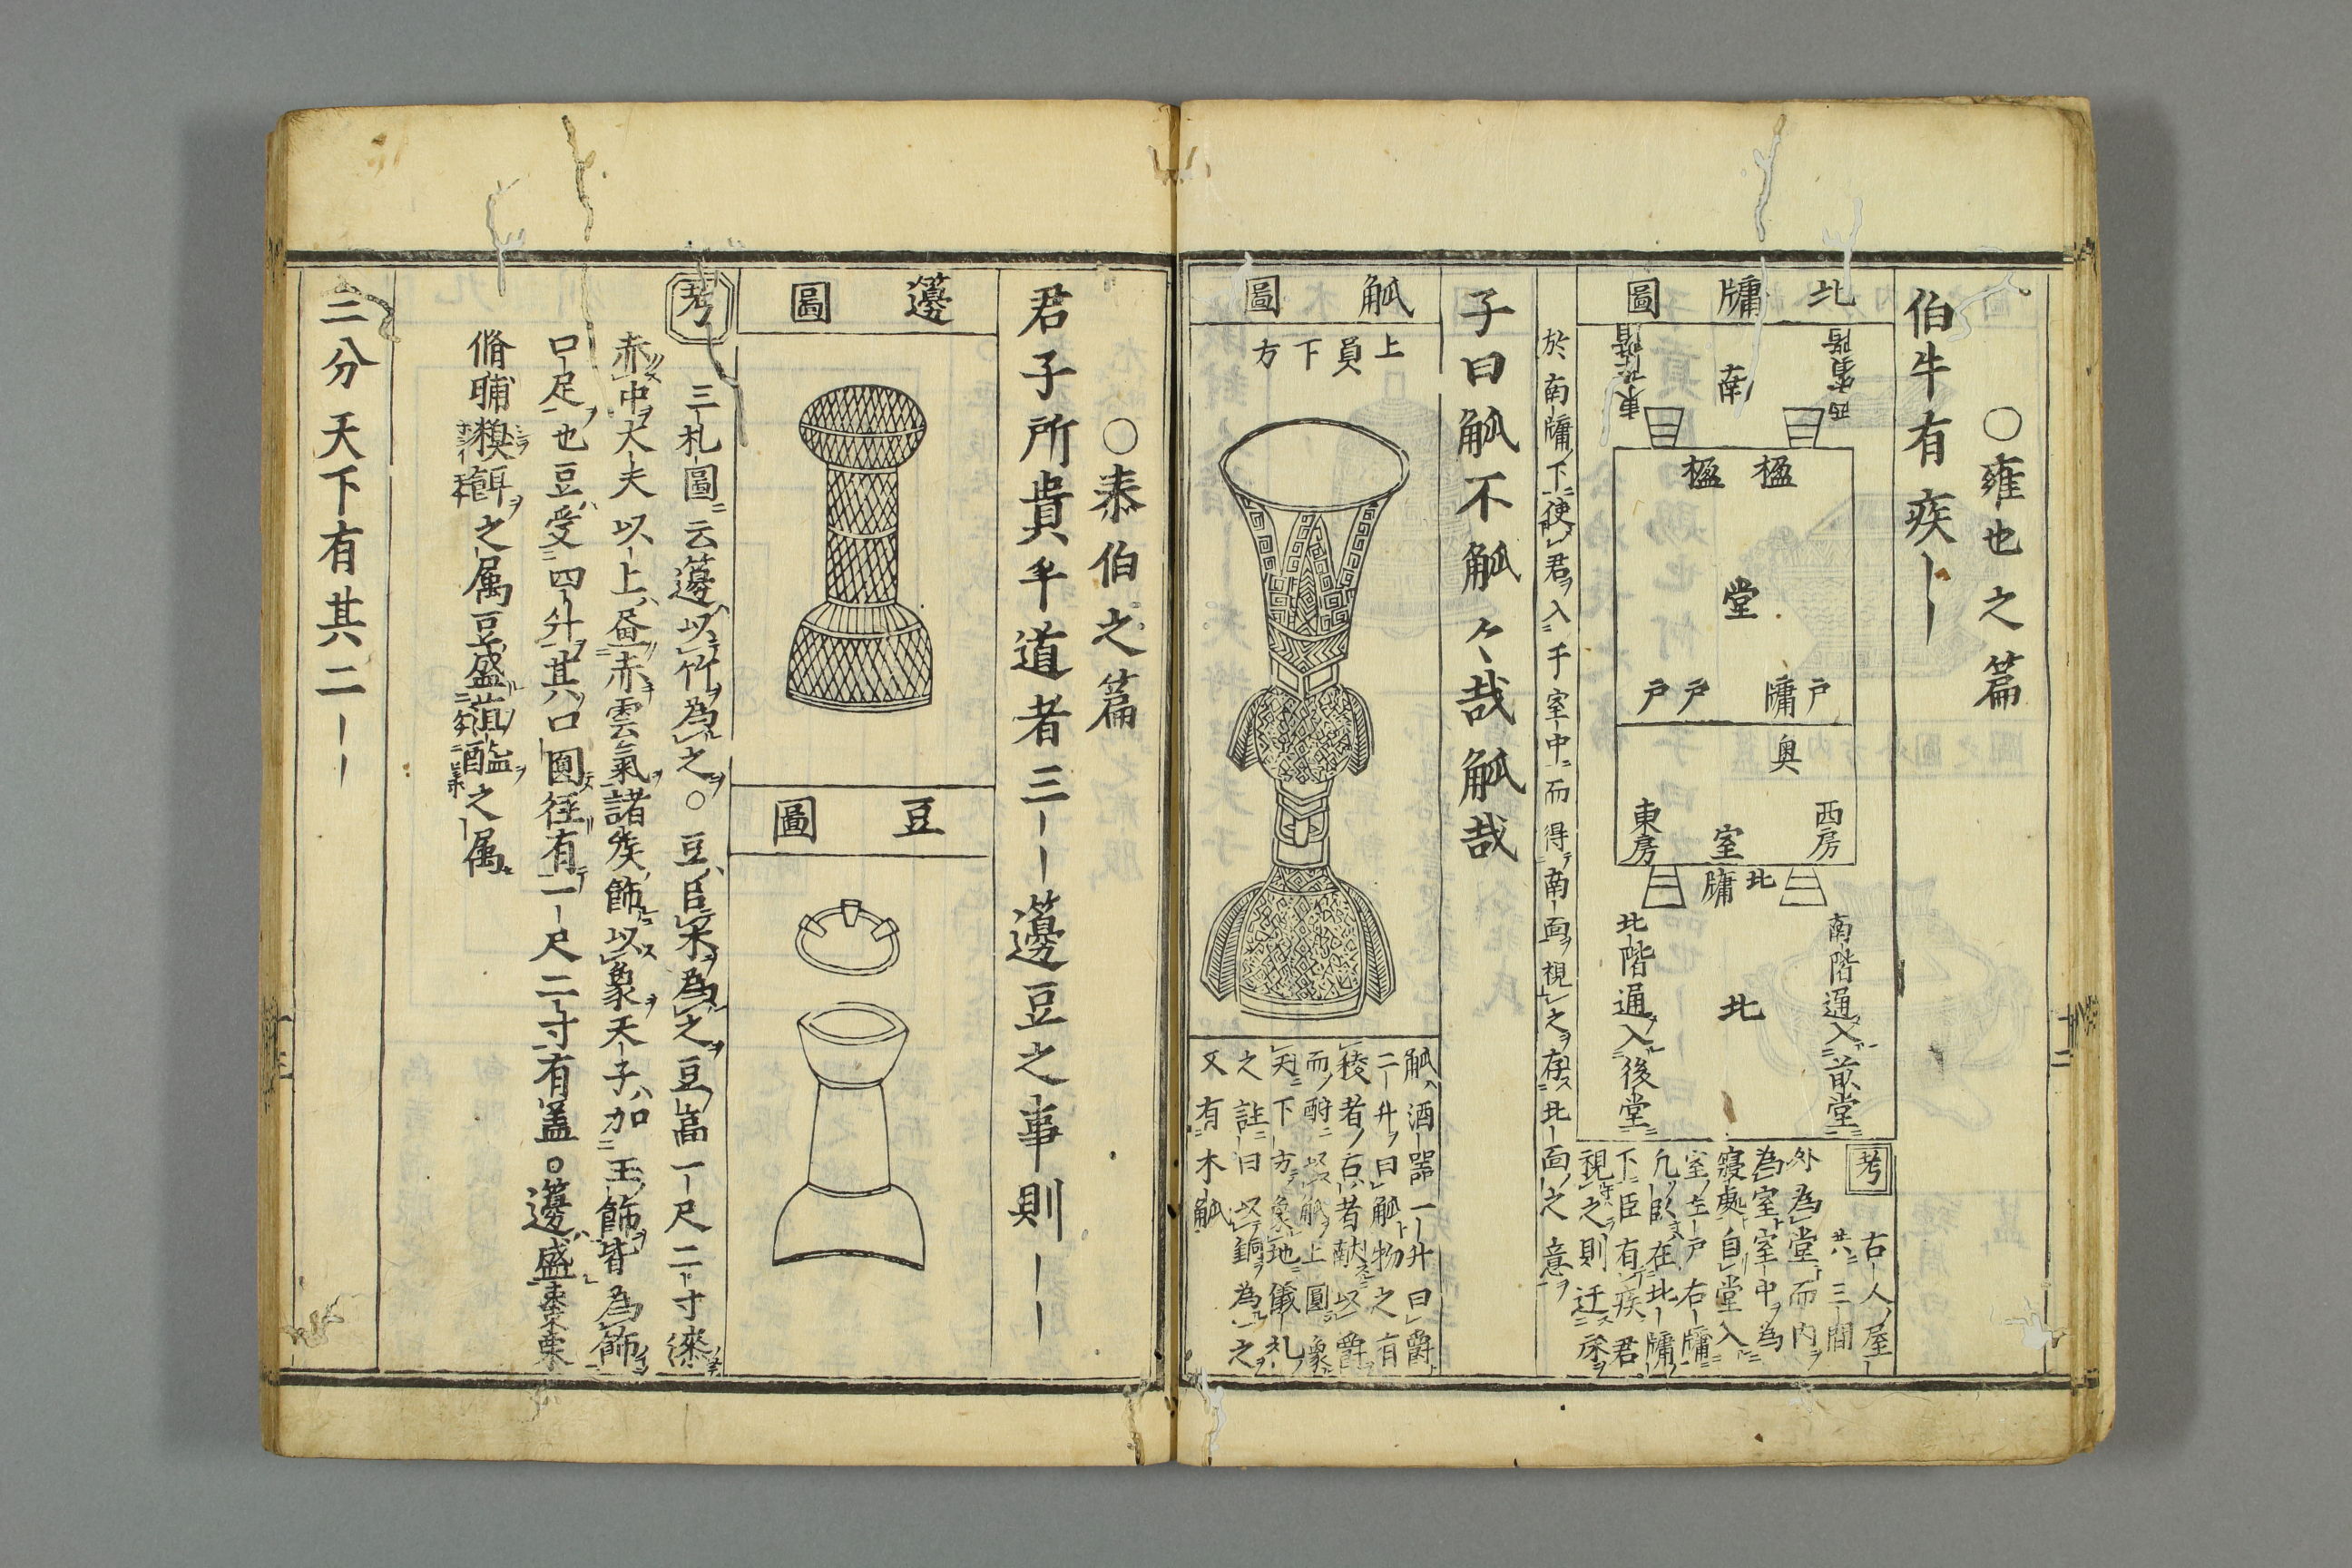 ○雍也之篇
伯牛有疾
北牖圖
西賓階
南
東阼階
楹 楹
堂
戸牖 戸戸
奥
西房
室
東房
北牖
南階通入前堂
北
北階通入後堂
考
右人ノ屋
共ニ三間
外為堂而内ヲ
為室室中ヲ為
寢處自堂入
室ノ左戸右牖
凡臥在北牖ノ
下臣有疾君
視之則迁床ヲ
於南牖ノ下ニ使君ヲ入于室中ニ而得南面ヲ視之ヲ存北面ノ之意ヲ
子曰觚不觚々哉觚哉
觚圖
上員下方
觚ハ酒器一升曰爵ト
二升ヲ曰觚ト物之有
稜者ノ古ハ者献以爵ヲ
而ノ酧ニ以觚ヲ上圓象
天ニ下方象地ニ儀礼ノ
之註ニ曰以銅ヲ為之ヲ
又有木觚
十二
○泰伯之篇
君子所貴乎道者三籩豆之事則
籩圖
豆圖
考
三礼圖ニ云籩ハ以竹ヲ為之ヲ○豆ハ以木ヲ為之ヲ豆高一尺二寸漆
赤中ヲ大夫以上ハ畫赤雲氣ヲ諸矦ハ飾以象ヲ天子ハ加玉飾ヲ皆為飾
口足ヲ也豆ハ受四升ヲ其口圓徑有一尺二寸有盖○籩ハ盛棗栗
脩脯糗餌ヲ之属豆ハ盛菹醢ヲ之属
三分天下有其二